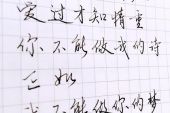 爱过才知情重
你不能做我的诗
正如
我不能做你的梦